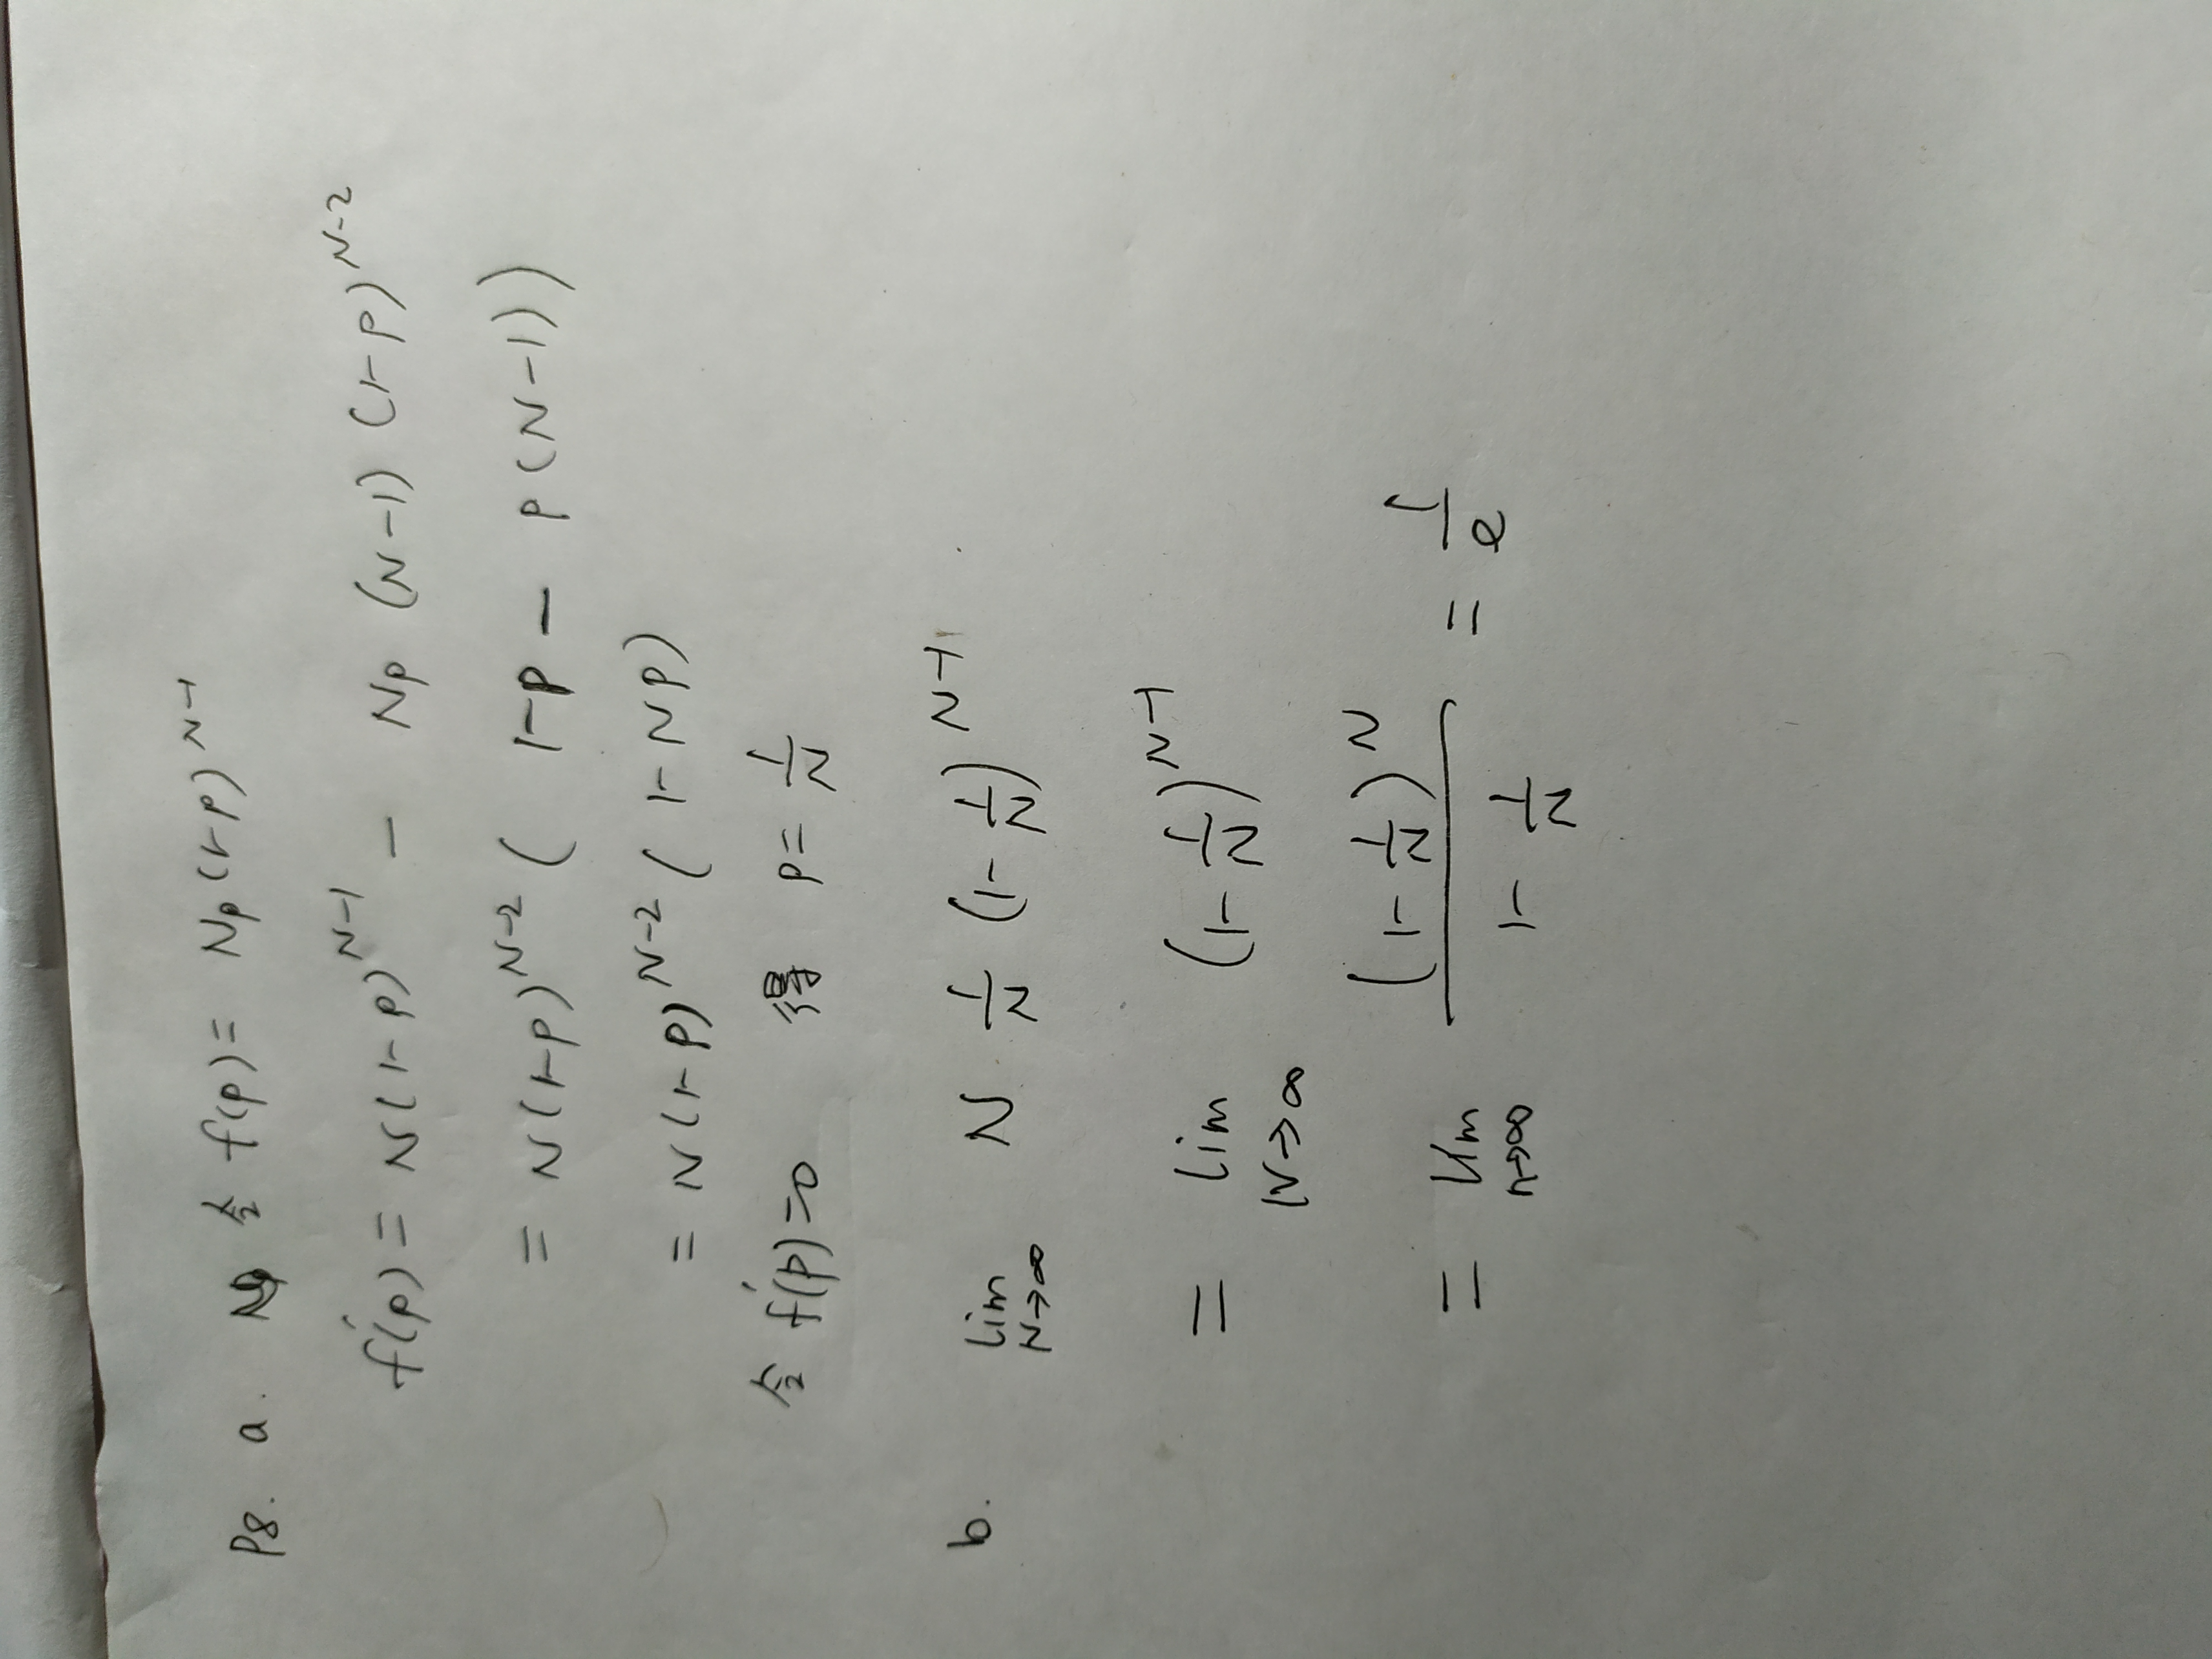 P8. a. 令 f(p) = Np(1-p)^{N-1}
f'(p) = N(1-p)^{N-1} - Np (N-1) (1-p)^{N-2}
= N(1-p)^{N-2} ( 1-p - p(N-1))
= N(1-p)^{N-2} ( 1-Np)
令 f'(p)=0 得 p= \frac{1}{N}
b. \lim_{N→∞} N \frac{1}{N} (1-\frac{1}{N})^{N-1}
= \lim_{N→∞} (1-\frac{1}{N})^{N-1}
= \lim_{n→∞} \frac{(1-\frac{1}{N})^{N}}{1-\frac{1}{N}} = \frac{1}{e}